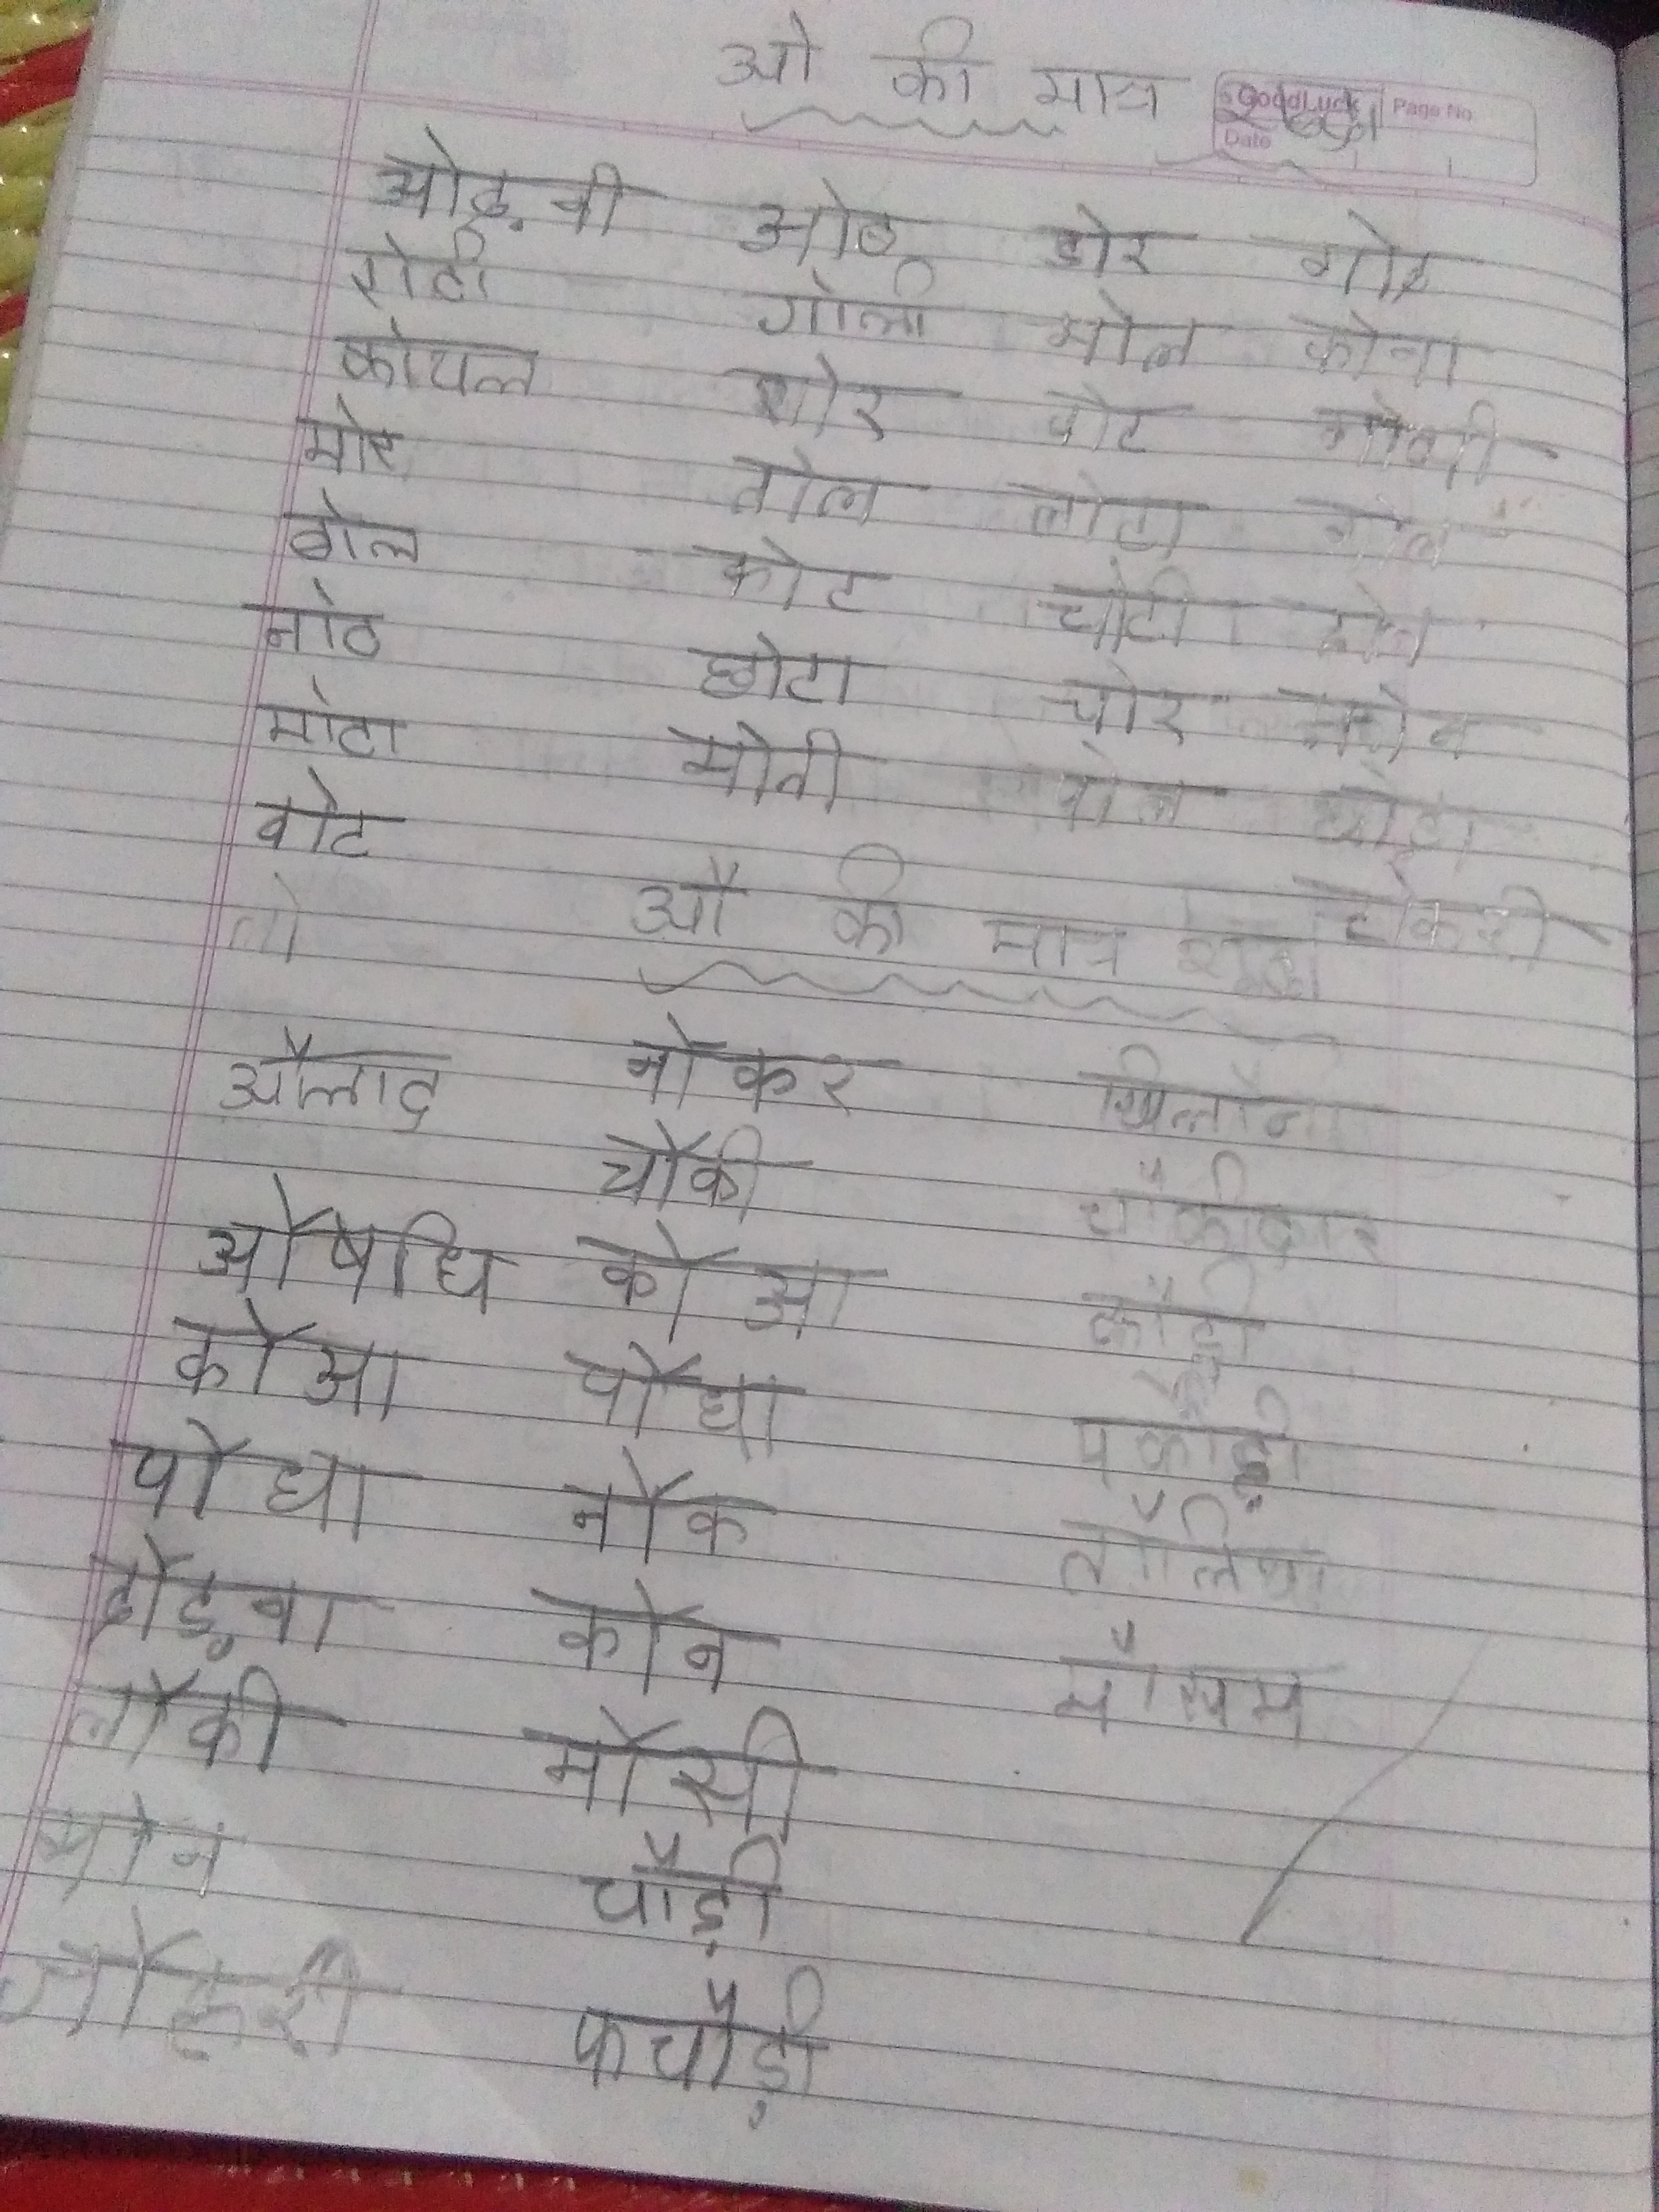 ओ की मात्र शब्द
GoodLuck Page No
Date
ओढ़नी ओठ डोर गोर
रोटी गोली मोल कोना
कोयल शोर वोट गोभी
मोर तोल लोटा गोल
ढोल कोट चोटी
नोठ छोटा चोर
मोटा मोती
वोट
तो टोकरी
औ की मात्र शब्द
औलाद नौकर खिलौना
चौकी चौकीदार
औषधि कौआ कौड़ी
कौआ पौधा पकौड़ी
पौधा नौक तौलिया
दौड़ना कौन मौसम
लौकी मौसी
मौन चौड़ी
जौहरी कचौड़ी